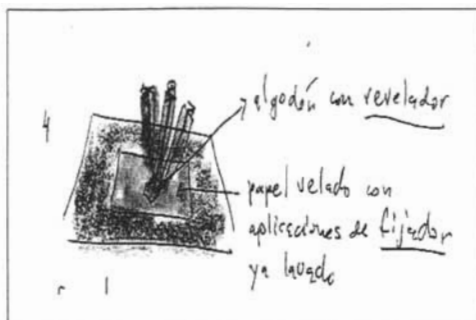 algodón con revelador
4
papel velado con
aplicaciones de fijador
ya lavado